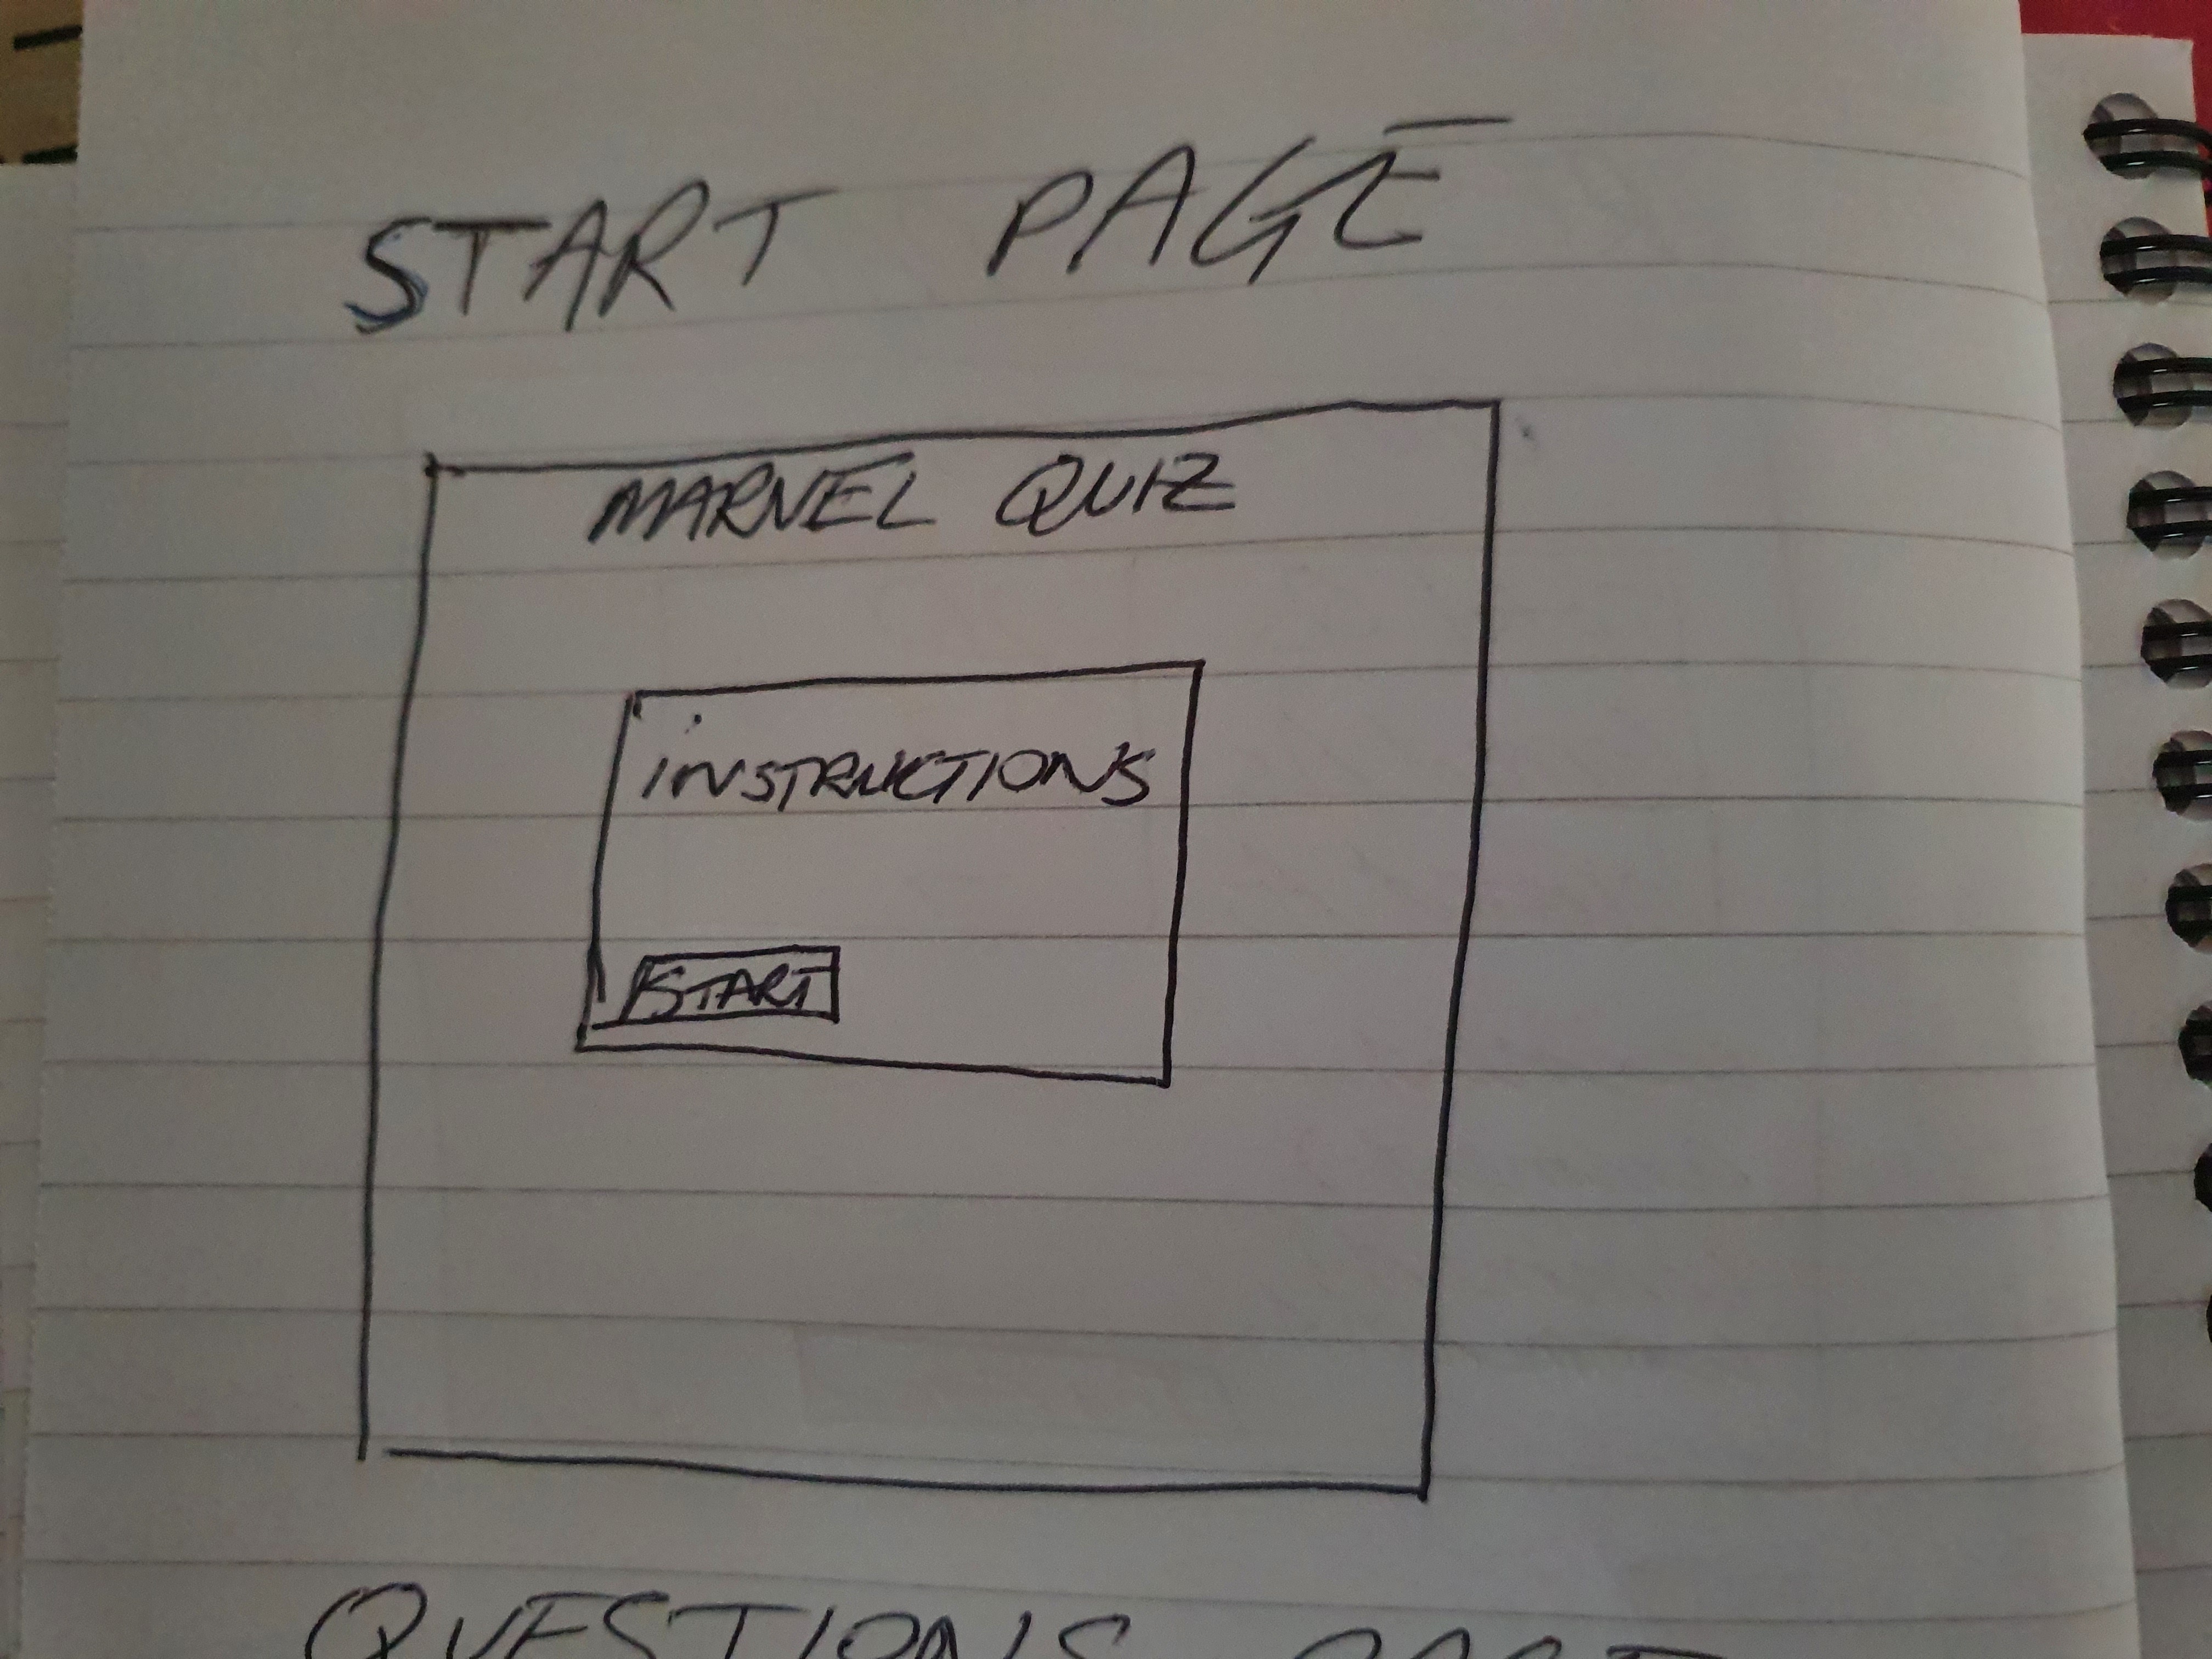 START PAGE
MARVEL QUIZ
INSTRUCTIONS
START
QUESTIONS PAGE